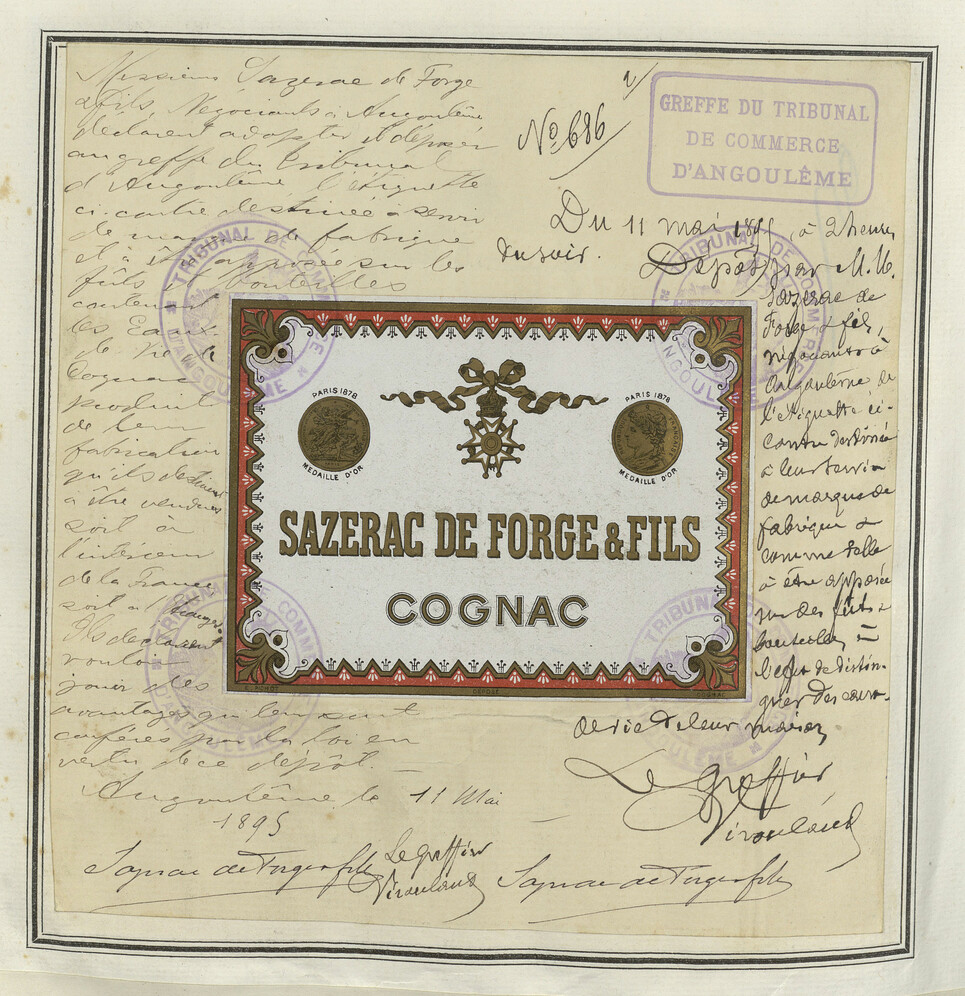 Messieurs Sazerac de Forge
& fils Négociants à Angoulême
déclarent adopter & déposer
au greffe du Tribunal
d'Angoulême l'étiquette
ci-contre destinée à servir
de marque de fabrique
et à être apposée sur les
fûts & bouteilles
contenant
les Eaux
de Vie de
Cognac
produit
de leur
fabrication
qu'ils destinent
à être vendues
soit à
l'intérieur
de la France
soit à l'étranger.
Ils déclarent
vouloir
jouir des
avantages qui leur sont
conférés par la loi en
vertu de ce dépôt.
Angoulême le 11 Mai
1895
Sazerac de Forge & fils
Le Greffier
Viroulaud
Sazerac de Forge & fils
No 686
GREFFE DU TRIBUNAL
DE COMMERCE
D'ANGOULÊME
Du 11 mai 1895, à 2 heures
du soir. Dépôt par M.M.
Sazerac de
Forge & fils,
négociants à
Angoulême de
l'étiquette ci-
contre destinée
à leur servir
de marque de
fabrique &
comme telle
à être apposée
sur des fûts &
bouteilles à
l'effet de distin-
guer des eaux-
de vie de leur maison
Le Greffier
Viroulaud
TRIBUNAL DE COMMERCE
D'ANGOULÊME
TRIBUNAL DE COMMERCE
D'ANGOULÊME
TRIBUNAL DE COMMERCE
TRIBUNAL
ANGOULÊME
PARIS 1878
MEDAILLE D'OR
PARIS 1878
MEDAILLE D'OR
SAZERAC DE FORGE & FILS
COGNAC
DÉPOSÉ